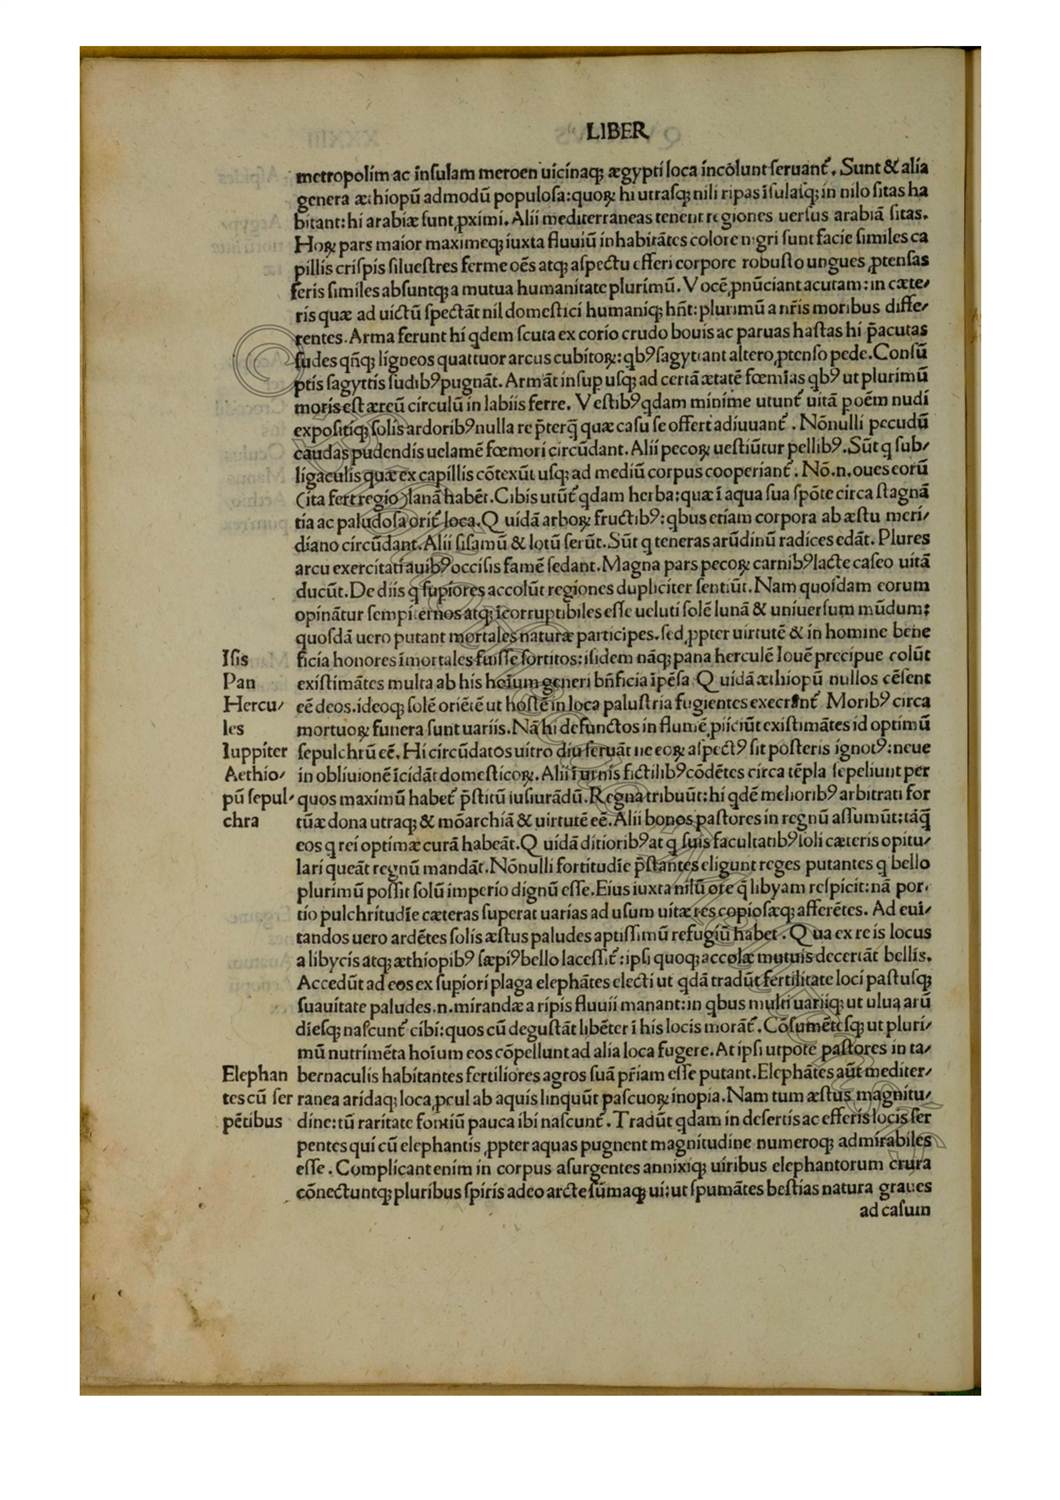 LIBER
metropolim ac insulam meroen uicinaqꝫ ægypti loca incolunt seruant᷑. Sunt & alia
genera æthiopū admodū populosa: quoꝝ hi utrasqꝫ nili ripas īsulasqꝫ in nilo sitas ha
bitant: hi arabiæ sunt ꝓximi. Alii mediterraneas tenent regiones uersus arabiā sitas.
Hoꝝ pars maior maximeqꝫ iuxta fluuiū inhabitātes colore nigri sunt facie similes ca
pillis crispis siluestres ferme oēs atqꝫ aspectu efferi corpore robusto ungues ꝓtensas
feris similes absuntqꝫ a mutua humanitate plurimū. Vocē ꝓnūciant acutam: in cæte/
ris quæ ad uictū spectāt nil domestici humaniqꝫ hn̄t: plurimū a nr̄is moribus diffe/
rentes. Arma ferunt hi qdem scuta ex corio crudo bouis ac paruas hastas hi p̄acutas
sudes qn̄qꝫ ligneos quattuor arcus cubitoꝝ: qbꝰ sagyttant altero ꝓtenso pede. Consū
ptis sagyttis sudibꝰ pugnāt. Armāt insup usqꝫ ad certā ætatē fœmīas qbꝰ ut plurimū
moris est æreū circulū in labiis ferre. Vestibꝰ qdam minime utunt᷑ uitā poēm nudi
expositiqꝫ solis ardoribꝰ nulla re p̄terq̄ quæ casu se offert adiuuant᷑. Nōnulli pecudū
caudas pudendis uelamē fœmori circūdant. Alii pecoꝝ uestiūtur pellibꝰ. Sūt q sub/
ligaculis quæ ex capillis cōtexūt usqꝫ ad mediū corpus cooperiant᷑. Nō.n. oues eorū
(ita fert regio) lanā habēt. Cibis utūt᷑ qdam herba: quæ ī aqua sua spōte circa stagnā
tia ac paludosa orit᷑ loca. Quidā arboꝝ fructibꝰ: qbus etiam corpora ab æstu meri/
diano circūdant. Alii sisamū & lotū serūt. Sūt q teneras arūdinū radices edāt. Plures
arcu exercitati auibꝰ occisis famē sedant. Magna pars pecoꝝ carnibꝰ lacte caseo uitā
ducūt. De diis q supiores accolūt regiones dupliciter sentiūt. Nam quosdam eorum
opinātur sempiternos atqꝫ īcorruptibiles esse ueluti solē lunā & uniuersum mūdum:
quosdā uero putant mortales naturæ participes. sed ꝓpter uirtutē & in homine bene
Isis
ficia honores īmortales fuisse sortitos: isidem nāqꝫ pana herculē Iouē precipue colūt
Pan
existimātes multa ab his hoīum generi bn̄ficia īpēsa. Quidā æthiopū nullos cēsent
Hercu/
eē deos. ideoqꝫ solē oriētē ut hostē in loca palustria fugientes execrant᷑. Moribꝰ circa
les
mortuoꝝ funera sunt uariis. Nā hi defunctos in flumē ꝓiiciūt existimātes id optimū
Iuppiter
sepulchrū eē. Hi circūdatos uitro diu seruāt ne eoꝝ aspectꝰ sit posteris ignotꝰ: neue
Aethio/
in obliuionē īcidāt domesticoꝝ. Alii ī urnis fictilibꝰ cōdētes circa tēpla sepeliunt per
pū sepul/
quos maximū habet᷑ p̄stitū iusiurādū. Regna tribuūt: hi qdē melioribꝰ arbitrati for
chra
tūæ dona utraqꝫ & mōarchiā & uirtutē eē. Alii bonos pastores in regnū assumūt: tāq̄
eos q rei optimæ curā habeāt. Quidā ditioribꝰ at q suis facultatibꝰ soli cæteris opitu/
lari queāt regnū mandāt. Nōnulli fortitudīe p̄stantes eligunt reges putantes q bello
plurimū possit solū imperio dignū esse. Eius iuxta nilū ore q̄ libyam respicit: nā por/
tio pulchritudīe cæteras superat uarias ad usum uitæ res copiosæqꝫ afferētes. Ad eui/
tandos uero ardētes solis æstus paludes aptissimū refugiū habet. Qua ex re is locus
a libycis atqꝫ æthiopibꝰ sæpiꝰ bello lacessit᷑: ipsi quoqꝫ accolæ mutuis decertāt bellis.
Accedūt ad eos ex supiori plaga elephātes electi ut qdā tradūt fertilitate loci pastusqꝫ
suauitate paludes.n. mirandæ a ripis fluuii manant: in qbus multi uariiqꝫ ut ulua arū
diēsqꝫ nascunt᷑ cibi: quos cū degustāt libēter ī his locis morāt᷑. Cōsumētesqꝫ ut pluri/
mū nutrimēta hoīum eos cōpellunt ad alia loca fugere. At ipsi utpote pastores in ta/
Elephan
bernaculis habitantes fertiliores agros suā pr̄iam esse putant. Elephātes aūt mediter/
tes cū ser
ranea aridaqꝫ loca ꝓcul ab aquis linquūt pascuoꝝ inopia. Nam tum æstus magnitu/
pētibus
dine: tū raritate fontiū pauca ibi nascunt᷑. Tradūt qdam in desertis ac efferis locis ser
pentes qui cū elephantis ꝓpter aquas pugnent magnitudine numeroqꝫ admirabiles
esse. Complicant enim in corpus asurgentes annixiqꝫ uiribus elephantorum crura
cōnectuntqꝫ pluribus spiris adeo arcte sūmaqꝫ ui: ut spumātes bestias natura graues
ad casum